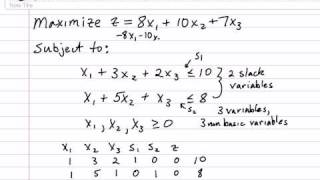 Maximize z = 8x₁ + 10x₂ + 7x₃
-8x₁-10x₂
Subject to:
S₁
x₁ + 3x₂ + 2x₃ ≤ 10 } 2 slack variables
x₁ + 5x₂ + x₃ ≤ 8
S₂
3 variables,
x₁, x₂, x₃ ≥ 0 3 non basic variables
x₁ x₂ x₃ S₁ S₂ z
1 3 2 1 0 0 10
1 5 1 0 1 0 8